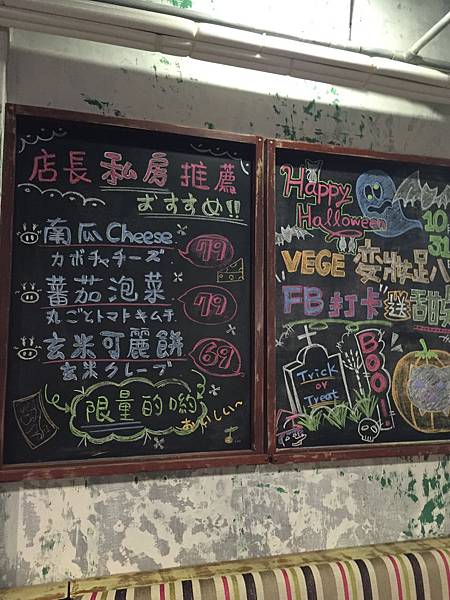 店長 私房 推薦
おすすめ!!
南瓜 Cheese 79
カボチャチーズ
蕃茄泡菜 79
丸ごとトマトキムチ
玄米可麗餅 69
玄米クレープ
限量的喲
おいしい~
Happy
Halloween
10.
31
VEGE 変妝趴
FB 打卡 送 甜
Trick
or
Treat
BOO!